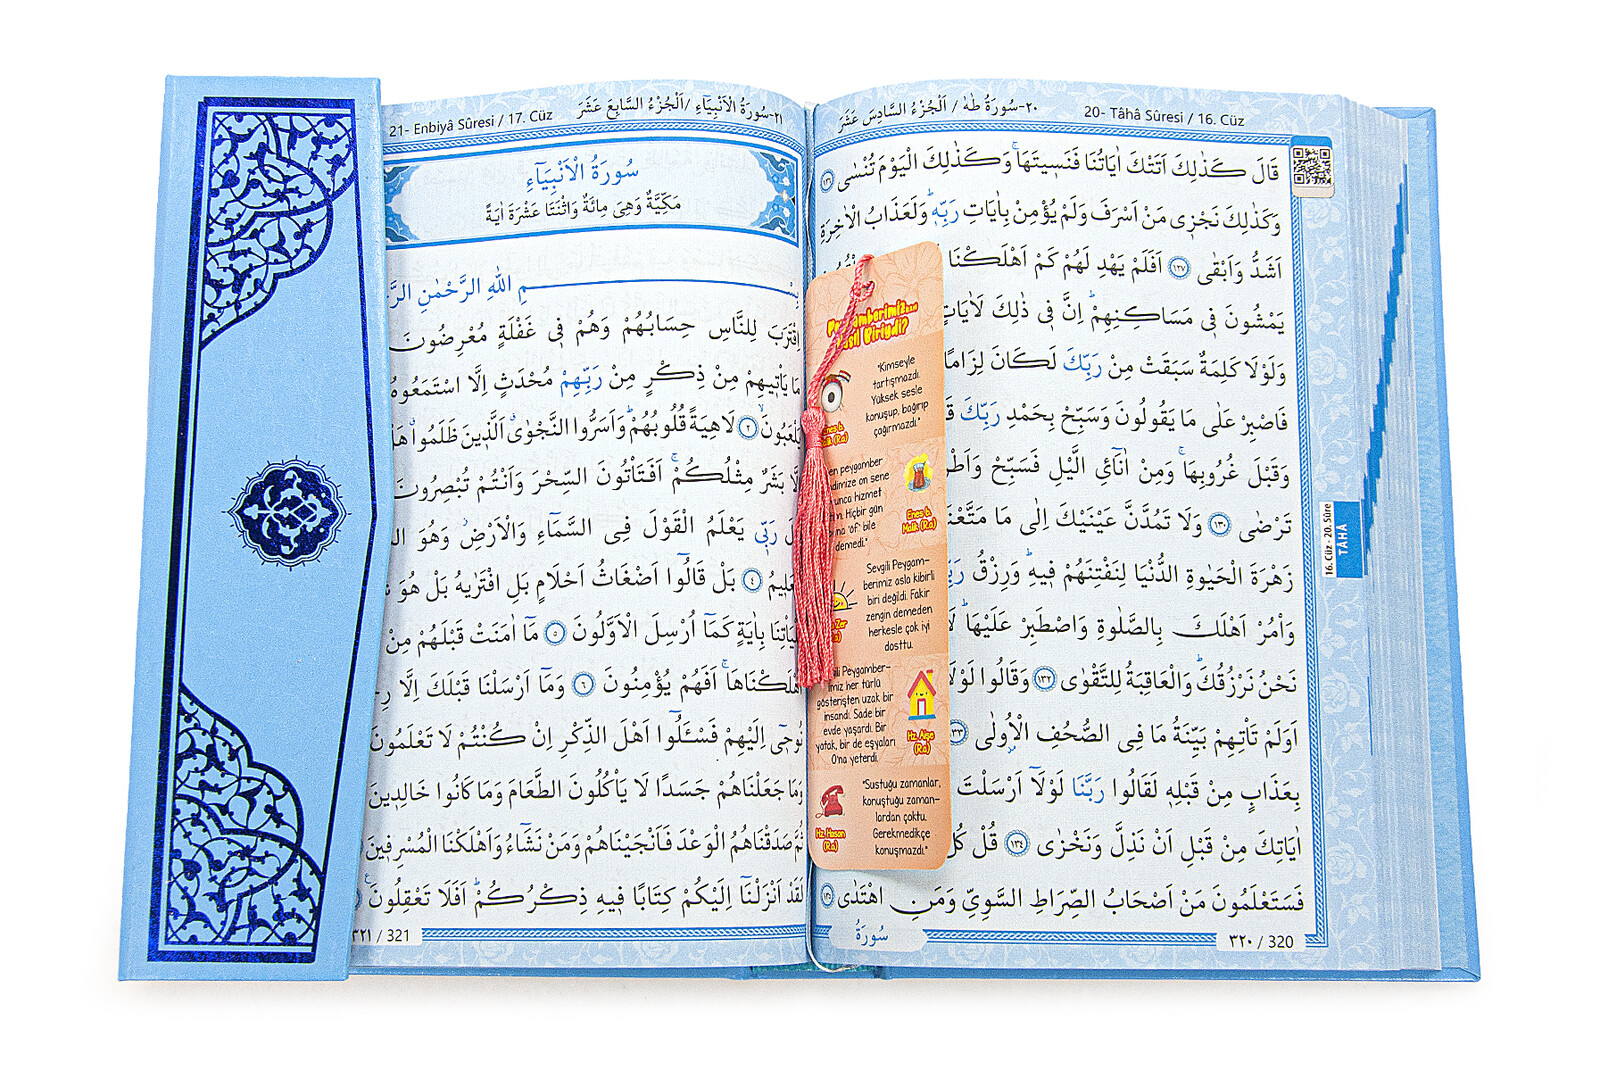 ٢٠-سُورَةُ طٰهٰ / اَلْجُزْءُ السَّادِسَ عَشَرَ
20- Tâhâ Sûresi / 16. Cüz
قَالَ كَذٰلِكَ اَتَتْكَ اٰيَاتُنَا فَنَسٖيتَهَاۚ وَكَذٰلِكَ الْيَوْمَ تُنْسٰى ١٢٦
وَكَذٰلِكَ نَجْزٖى مَنْ اَسْرَفَ وَلَمْ يُؤْمِنْ بِاٰيَاتِ رَبِّهٖؕ وَلَعَذَابُ الْاٰخِرَةِ
اَشَدُّ وَاَبْقٰى ١٢٧ اَفَلَمْ يَهْدِ لَهُمْ كَمْ اَهْلَكْنَا
يَمْشُونَ فٖى مَسَاكِنِهِمْؕ اِنَّ فٖى ذٰلِكَ لَاٰيَاتٍ
وَلَوْلَا كَلِمَةٌ سَبَقَتْ مِنْ رَبِّكَ لَكَانَ لِزَامًا
فَاصْبِرْ عَلٰى مَا يَقُولُونَ وَسَبِّحْ بِحَمْدِ رَبِّكَ
وَقَبْلَ غُرُوبِهَاۚ وَمِنْ اٰنَآئِ الَّيْلِ فَسَبِّحْ
تَرْضٰى ١٣٠ وَلَا تَمُدَّنَّ عَيْنَيْكَ اِلٰى مَا مَتَّعْنَا
زَهْرَةَ الْحَيٰوةِ الدُّنْيَا لِنَفْتِنَهُمْ فٖيهِؕ وَرِزْقُ
وَأْمُرْ اَهْلَكَ بِالصَّلٰوةِ وَاصْطَبِرْ عَلَيْهَاؕ
نَحْنُ نَرْزُقُكَؕ وَالْعَاقِبَةُ لِلتَّقْوٰى ١٣٢ وَقَالُوا
اَوَلَمْ تَأْتِهِمْ بَيِّنَةُ مَا فِى الصُّحُفِ الْاُولٰى
بِعَذَابٍ مِنْ قَبْلِهٖ لَقَالُوا رَبَّنَا لَوْلَآ اَرْسَلْتَ
اٰيَاتِكَ مِنْ قَبْلِ اَنْ نَذِلَّ وَنَخْزٰى ١٣٤ قُلْ كُلٌّ
فَسَتَعْلَمُونَ مَنْ اَصْحَابُ الصِّرَاطِ السَّوِىِّ وَمَنِ اهْتَدٰى ١٣٥
سُورَةُ
٣٢٠ / 320
16. Cüz - 20. Sûre
TÂHÂ
"Kimseyle
tartışmazdı.
Yüksek sesle
konuşup, bağırıp
çağırmazdı."
peygamber
on sene
hizmet
Hiçbir gün
'of' bile
demedi."
Enes b.
Malik (Ra)
Sevgili Peygam-
berimiz asla kibirli
biri değildi. Fakir
zengin demeden
herkesle çok iyi
dosttu.
Peygamber-
imiz her türlü
gösterişten uzak bir
insandı. Sade bir
evde yaşardı. Bir
yatak, bir de eşyaları
O'na yeterdi.
Hz. Aişe
(Ra)
"Sustuğu zamanlar,
konuştuğu zaman-
lardan çoktu.
Gerekmedikçe
konuşmazdı."
Hz. Hasan
(Ra)
21- Enbiyâ Sûresi / 17. Cüz
٢١-سُورَةُ الْاَنْبِيَآءِ / اَلْجُزْءُ السَّابِعَ عَشَرَ
سُورَةُ الْاَنْبِيَآءِ
مَكِّيَّةٌ وَهِىَ مِائَةٌ وَاثْنَتَا عَشْرَةَ اٰيَةً
بِسْمِ اللّٰهِ الرَّحْمٰنِ
اِقْتَرَبَ لِلنَّاسِ حِسَابُهُمْ وَهُمْ فٖى غَفْلَةٍ مُعْرِضُونَ
مَا يَأْتٖيهِمْ مِنْ ذِكْرٍ مِنْ رَبِّهِمْ مُحْدَثٍ اِلَّا اسْتَمَعُوهُ
يَلْعَبُونَۙ ٢ لَاهِيَةً قُلُوبُهُمْؕ وَاَسَرُّوا النَّجْوٰىۗ اَلَّذٖينَ ظَلَمُواۗ
اِلَّا بَشَرٌ مِثْلُكُمْۚ اَفَتَأْتُونَ السِّحْرَ وَاَنْتُمْ تُبْصِرُونَ
رَبّٖى يَعْلَمُ الْقَوْلَ فِى السَّمَآءِ وَالْاَرْضِؗ وَهُوَ
الْعَلٖيمُ ٤ بَلْ قَالُوا اَضْغَاثُ اَحْلَامٍ بَلِ افْتَرٰيهُ بَلْ هُوَ
فَلْيَأْتِنَا بِاٰيَةٍ كَمَآ اُرْسِلَ الْاَوَّلُونَ ٥ مَآ اٰمَنَتْ قَبْلَهُمْ مِنْ
اَهْلَكْنَاهَاۚ اَفَهُمْ يُؤْمِنُونَ ٦ وَمَآ اَرْسَلْنَا قَبْلَكَ اِلَّا
نُوحٖى اِلَيْهِمْ فَسْـَٔلُٓوا اَهْلَ الذِّكْرِ اِنْ كُنْتُمْ لَا تَعْلَمُونَ
وَمَا جَعَلْنَاهُمْ جَسَدًا لَا يَأْكُلُونَ الطَّعَامَ وَمَا كَانُوا خَالِدٖينَ
ثُمَّ صَدَقْنَاهُمُ الْوَعْدَ فَاَنْجَيْنَاهُمْ وَمَنْ نَشَآءُ وَاَهْلَكْنَا الْمُسْرِفٖينَ
لَقَدْ اَنْزَلْنَآ اِلَيْكُمْ كِتَابًا فٖيهِ ذِكْرُكُمْؕ اَفَلَا تَعْقِلُونَ
٣٢١ / 321